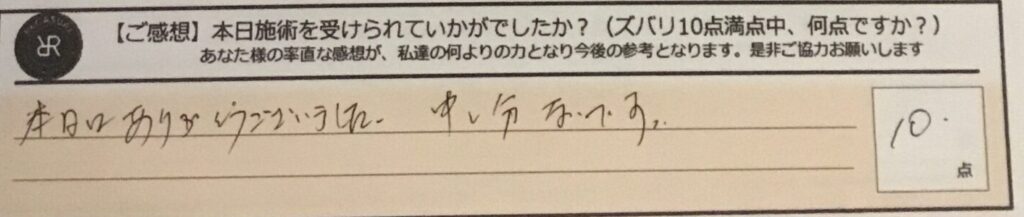 【ご感想】本日施術を受けられていかがでしたか？（ズバリ10点満点中、何点ですか？）
あなた様の率直な感想が、私達の何よりの力となり今後の参考となります。是非ご協力お願いします
本日はありがとうございました。 申し分ないです。
10.
点